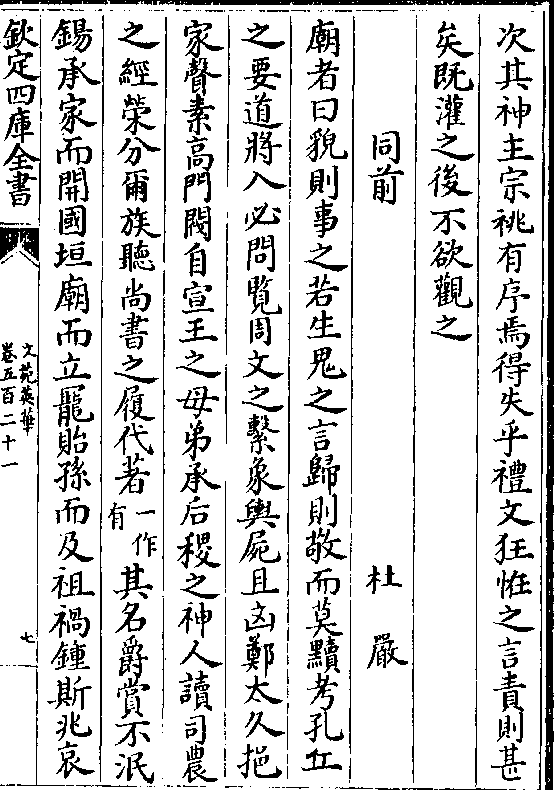 次其神主宗祧有序焉得失乎禮文狂恠之言責則甚
矣既灌之後不欲觀之
同前 杜嚴
廟者曰貌則事之若生鬼之言歸則敬而莫黷考孔丘
之要道將入必問覽周文之繫象輿屍且凶鄭太久挹
家聲素高門閥自宣王之母弟承后稷之神人讀司農
之經榮分爾族聽尚書之履代著一作有其名爵賞不泯
錫承家而開國垣廟而立寵貽孫而及祖禍鍾斯兆哀
欽定四庫全書
文苑英華
卷五百二十一
七